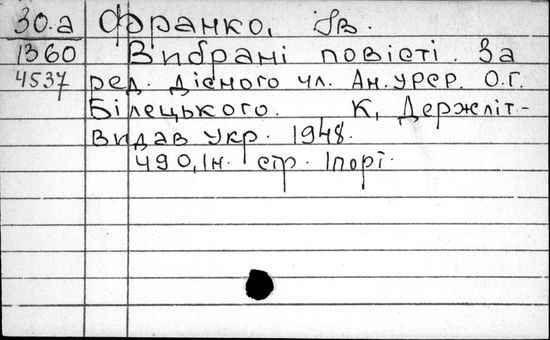 30.а Франко, Ів.
1360 Вибрані повісті. За
4537 ред. дісного чл. Ан.УРСР. О.Г.
Білецького. К, Держліт-
видав Укр. 1948.
490,1н. стр. 1порт.